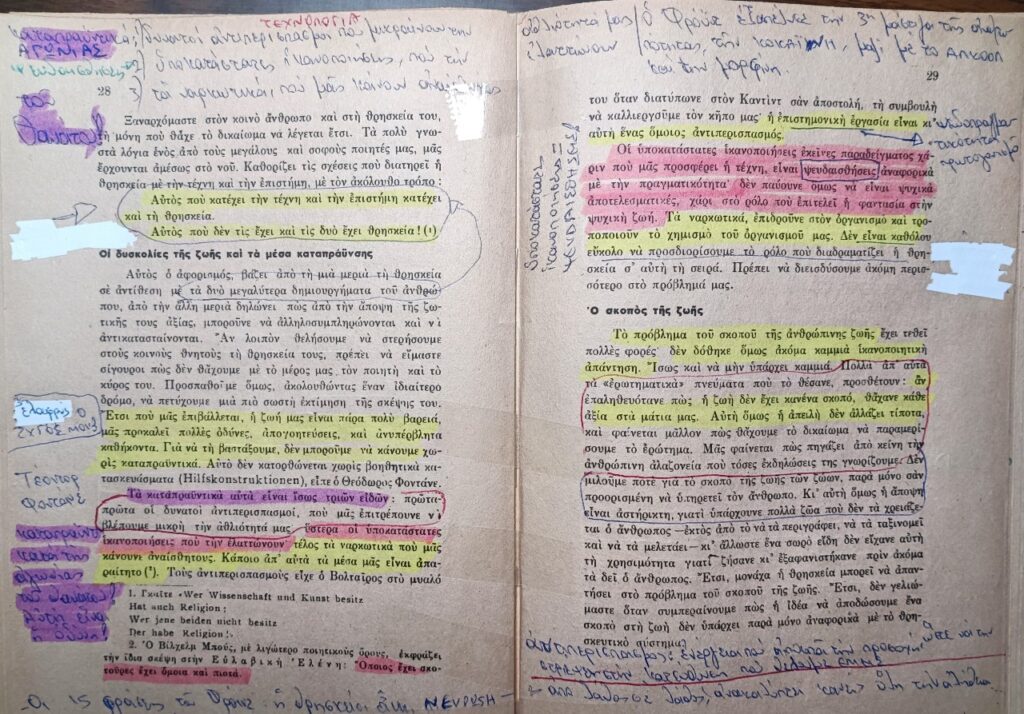 ΤΕΧΝΟΛΟΓΙΑ
καταπραϋντικά
ΑΓΩΝΙΑΣ
δυνατοί αντιπερισπασμοί που μικραίνουν την
2) υποκατάστατες ικανοποιήσεις, που την
3) τα ναρκωτικά, που μᾶς κάνουν
τοῦ
θανάτου!
28
Ξαναρχόμαστε στὸν κοινὸ ἄνθρωπο καὶ στὴ θρησκεία του,
τὴ μόνη ποὺ θἄχε τὸ δικαίωμα νὰ λέγεται ἔτσι. Τὰ πολὺ γνω-
στὰ λόγια ἑνὸς ἀπὸ τοὺς μεγάλους καὶ σοφοὺς ποιητές μας, μᾶς
ἔρχονται ἀμέσως στὸ νοῦ. Καθορίζει τὶς σχέσεις ποὺ διατηρεῖ ἡ
θρησκεία μὲ τὴν τέχνη καὶ τὴν ἐπιστήμη, μὲ τὸν ἀκόλουθο τρόπο:
Αὐτὸς ποὺ κατέχει τὴν τέχνη καὶ τὴν ἐπιστήμη κατέχει
καὶ τὴ θρησκεία.
Αὐτὸς ποὺ δὲν τὶς ἔχει καὶ τὶς δυὸ ἔχει θρησκεία! (¹)
Οἱ δυσκολίες τῆς ζωῆς καὶ τὰ μέσα καταπράϋνσης
Αὐτὸς ὁ ἀφορισμός, βάζει ἀπὸ τὴ μιὰ μεριὰ τὴ θρησκεία
σὲ ἀντίθεση μὲ τὰ δυὸ μεγαλύτερα δημιουργήματα τοῦ ἀνθρώ-
που, ἀπὸ τὴν ἄλλη μεριὰ δηλώνει πὼς ἀπὸ τὴν ἄποψη τῆς ζω-
τικῆς τους ἀξίας, μποροῦνε νὰ ἀλληλοσυμπληρώνονται καὶ νὰ
ἀντικατασταίνονται. Ἂν λοιπὸν θελήσουμε νὰ στερήσουμε
στοὺς κοινοὺς θνητοὺς τὴ θρησκεία τους, πρέπει νὰ εἴμαστε
σίγουροι πὼς δὲν θἄχουμε μὲ τὸ μέρος μας τὸν ποιητὴ καὶ τὸ
κύρος του. Προσπαθοῦμε ὅμως, ἀκολουθώντας ἕναν ἰδιαίτερο
δρόμο, νὰ πετύχουμε μιὰ πιὸ σωστὴ ἐκτίμηση τῆς σκέψης του.
Ἔτσι ποὺ μᾶς ἐπιβάλλεται, ἡ ζωή μας εἶναι πάρα πολὺ βαρειά,
μᾶς προκαλεῖ πολλὲς ὀδύνες, ἀπογοητεύσεις, καὶ ἀνυπέρβλητα
καθήκοντα. Γιὰ νὰ τὴ βαστάξουμε, δὲν μποροῦμε νὰ κάνουμε χω-
ρὶς καταπραϋντικά. Αὐτὸ δὲν κατορθώνεται χωρὶς βοηθητικὰ κα-
τασκευάσματα (Hilfskonstruktionen), εἶπε ὁ Θεόδωρος Φοντάνε.
Τὰ καταπραϋντικὰ αὐτὰ εἶναι ἴσως τριῶν εἰδῶν: πρῶτα-
πρῶτα οἱ δυνατοὶ ἀντιπερισπασμοί, ποὺ μᾶς ἐπιτρέπουνε νὰ
βλέπουμε μικρὴ τὴν ἀθλιότητά μας, ὕστερα οἱ ὑποκατάστατες
ἱκανοποιήσεις ποὺ τὴν ἐλαττώνουν τέλος τὰ ναρκωτικὰ ποὺ μᾶς
κάνουνε ἀναίσθητους. Κάποιο ἀπ' αὐτὰ τὰ μέσα μᾶς εἶναι ἀπα-
ραίτητο (²). Τοὺς ἀντιπερισπασμοὺς εἶχε ὁ Βολταῖρος στὸ μυαλό
1. Γκαῖτε «Wer Wissenschaft und Kunst besitz
Hat auch Religion;
Wer jene beiden nicht besitz
Der habe Religion!.
2. Ὁ Βίλχελμ Μπούς, μὲ λιγώτερο ποιητικοὺς ὅρους, ἐκφράζει
τὴν ἴδια σκέψη στὴν Εὐλαβικὴ Ἑλένη: Ὅποιος ἔχει σκο-
τοῦρες ἔχει ὅμοια καὶ πιοτά.
ἐλαφρύς ὁ
ΖΥΓΟΣ ΜΟΥ
Τέοντορ
Φοντάνε
ΝΕΥΡΩΣΗ
αθλιότητά μας
ἐλαττώνουν
ὁ Φρόϋντ
ΚΟΚΑΪΝΗ, μαζί με το ΑΛΚΟΟΛ
και την μορφίνη.
29
του ὅταν διατύπωνε στὸν Καντὶντ σὰν ἀποστολή, τὴ συμβουλὴ
νὰ καλλιεργοῦμε τὸν κῆπο μας· ἡ ἐπιστημονικὴ ἐργασία εἶναι κι'
αὐτὴ ἕνας ὅμοιος ἀντιπερισπασμός.
Οἱ ὑποκατάστατες ἱκανοποιήσεις ἐκεῖνες παραδείγματος χά-
ριν ποὺ μᾶς προσφέρει ἡ τέχνη, εἶναι ψευδαισθήσεις ἀναφορικὰ
μὲ τὴν πραγματικότητα· δὲν παύουνε ὅμως νὰ εἶναι ψυχικὰ
ἀποτελεσματικές, χάρι στὸ ρόλο ποὺ ἐπιτελεῖ ἡ φαντασία στὴν
ψυχικὴ ζωή. Τὰ ναρκωτικά, ἐπιδροῦνε στὸν ὀργανισμὸ καὶ τρο-
ποποιοῦν τὸ χημισμὸ τοῦ ὀργανισμοῦ μας. Δὲν εἶναι καθόλου
εὔκολο νὰ προσδιορίσουμε τὸ ρόλο ποὺ διαδραματίζει ἡ θρη-
σκεία σ' αὐτὴ τὴ σειρά. Πρέπει νὰ διεισδύσουμε ἀκόμη περισ-
σότερο στὸ πρόβλημά μας.
Υποκατάστατες
ικανοποιήσεις =
ΨΕΥΔΑΙΣΘΗΣΕΙΣ
Ὁ σκοπὸς τῆς ζωῆς
Τὸ πρόβλημα τοῦ σκοποῦ τῆς ἀνθρώπινης ζωῆς ἔχει τεθεῖ
πολλὲς φορές· δὲν δόθηκε ὅμως ἀκόμα καμμιὰ ἱκανοποιητικὴ
ἀπάντηση. Ἴσως καὶ νὰ μὴν ὑπάρχει καμμιά. Πολλὰ ἀπ' αὐτὰ
τὰ «ἐρωτηματικὰ» πνεύματα ποὺ τὸ θέσανε, προσθέτουν: ἂν
ἐπαληθευότανε πὼς ἡ ζωὴ δὲν ἔχει κανένα σκοπό, θἄχανε κάθε
ἀξία στὰ μάτια μας. Αὐτὴ ὅμως ἡ ἀπειλὴ δὲν ἀλλάζει τίποτα,
καὶ φαίνεται μᾶλλον πὼς θἄχουμε τὸ δικαίωμα νὰ παραμερί-
σουμε τὸ ἐρώτημα. Μᾶς φαίνεται πὼς πηγάζει ἀπὸ κείνη τὴν
ἀνθρώπινη ἀλαζονεία ποὺ τόσες ἐκδηλώσεις της γνωρίζουμε. Δὲν
μιλοῦμε ποτὲ γιὰ τὸ σκοπὸ τῆς ζωῆς τῶν ζώων, παρὰ μόνο σὰν
προορισμένη νὰ ὑπηρετεῖ τὸν ἄνθρωπο. Κι' αὐτὴ ὅμως ἡ ἄποψη
εἶναι ἀστήρικτη, γιατὶ ὑπάρχουνε πολλὰ ζῶα ποὺ δὲν τὰ χρειάζε-
ται ὁ ἄνθρωπος —ἐκτὸς ἀπὸ τὸ νὰ τὰ περιγράφει, νὰ τὰ ταξινομεῖ
καὶ νὰ τὰ μελετάει— κι' ἄλλωστε ἕνα σωρὸ εἴδη δὲν εἴχανε αὐτὴ
τὴ χρησιμότητα γιατὶ ζήσανε κι' ἐξαφανιστήκανε πρὶν ἀκόμα
τὰ δεῖ ὁ ἄνθρωπος. Ἔτσι, μονάχα ἡ θρησκεία μπορεῖ νὰ ἀπαν-
τήσει στὸ πρόβλημα τοῦ σκοποῦ τῆς ζωῆς. Ἔτσι, δὲν γελιώ-
μαστε ὅταν συμπεραίνουμε πὼς ἡ ἰδέα νὰ ἀποδώσουμε ἕνα
σκοπὸ στὴ ζωὴ δὲν ὑπάρχει παρὰ μόνο ἀναφορικὰ μὲ τὸ θρη-
σκευτικὸ σύστημα.